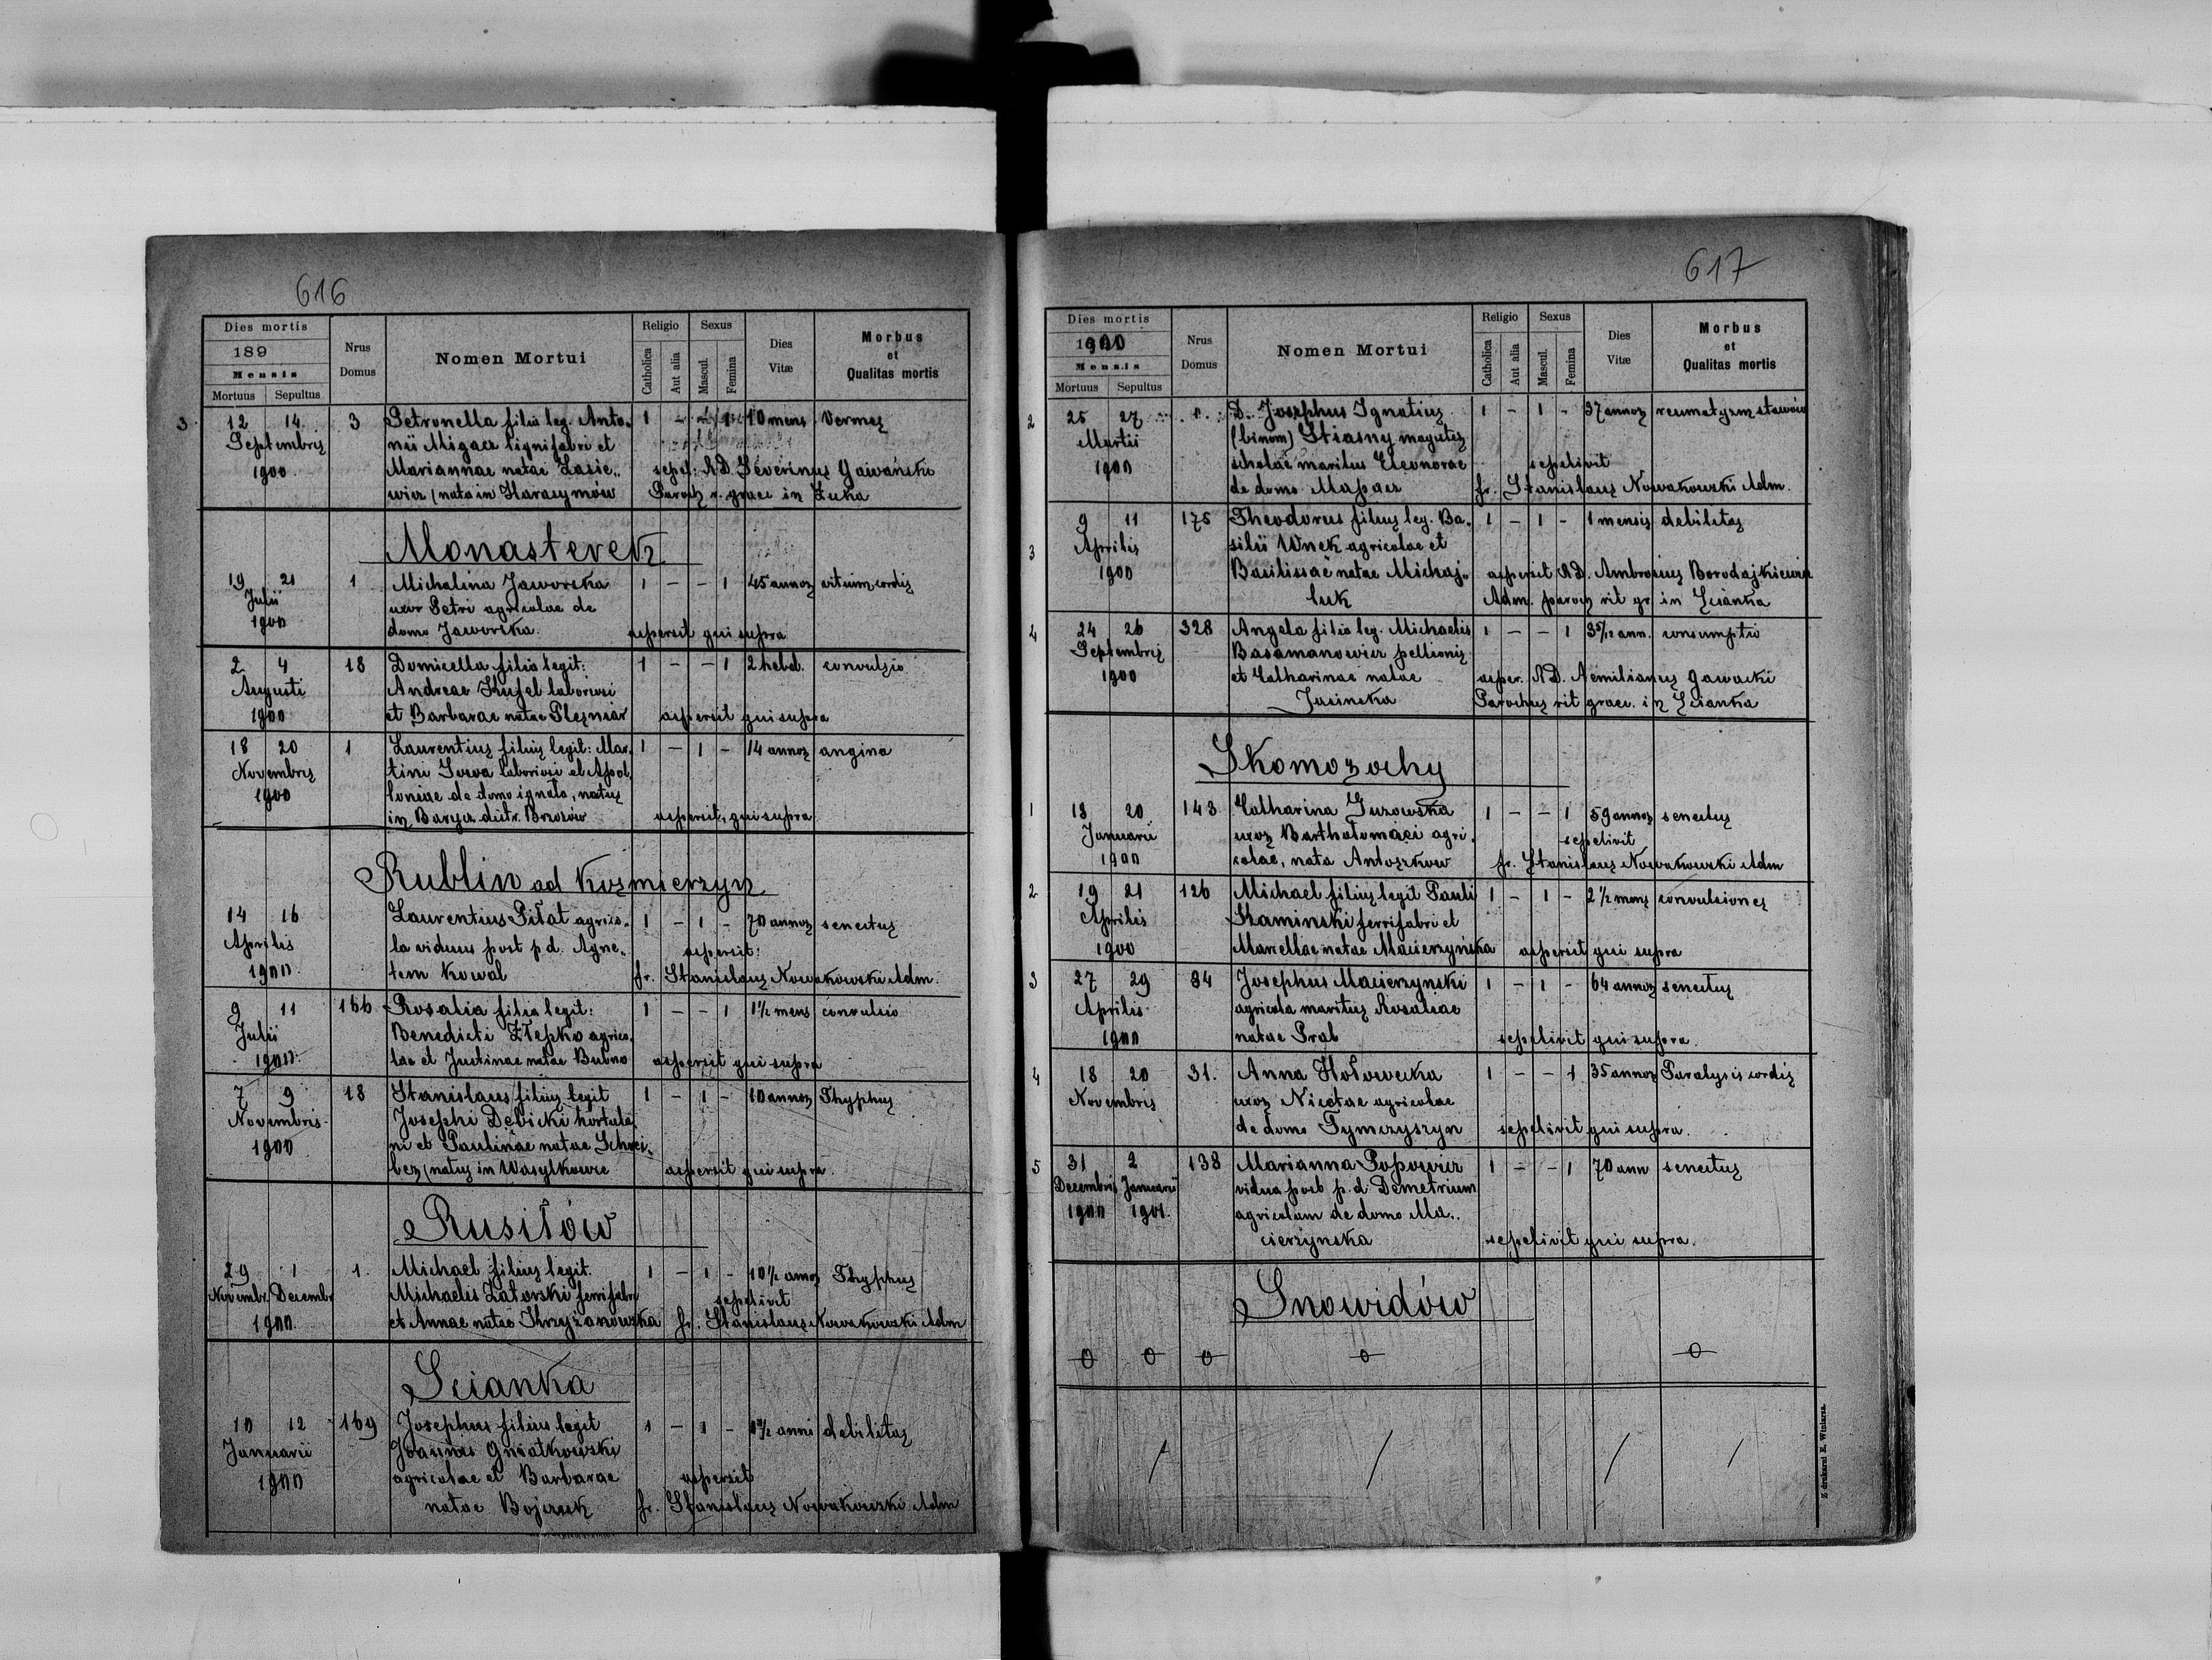 616
Dies mortis
189
Mensis
Mortuus Sepultus
Nrus Domus
Nomen Mortui
Religio
Catholica
Aut alia
Sexus
Mascul.
Femina
Dies Vitæ
Morbus et Qualitas mortis
3 12 14 3 Petronella filia leg. Anto„ 1 - 1 10 mens Vermes
Septembris nii Migacz lignifabri et
Mariannae natae Lasie„ sepel: AD. Severinus Gawański
1900 wicz (nata in Harasymów Paroch r. graec in Łuka
Monasterek
19 21 1 Michalina Jaworska 1 - - 1 45 annos vitium cordis
Julii uxor Petri agricolae de
1900 domo Jaworska. aspersit qui supra
2 4 18 Domicella filia legit: 1 - - 1 2 hebd. convulsio
Augusti Andreae Kufel laboriosi
1900 et Barbarae natae Pleśniar aspersit qui supra
18 20 1 Laurentius filius legit: Mar„ 1 - 1 - 14 annos angina
Novembris tini Sowa laboriosi et Apol„
1900 loniae de domo ignota, natus
in Barycz distr. Brzozów aspersit, qui supra
Rublin ad Kośmierzyn
14 16 Laurentius Piłat agrico„ 1 - 1 - 70 annos senectus
Aprilis la viduus post p.d. Agne„ aspersit:
1900 tem Kowal fr. Stanislaus Nowakowski Adm.
9 11 166 Rosalia filia legit: 1 - - 1 1½ mens convulsio
Julii Benedicti Złepko agrico„
1900 lae et Justinae natae Bubno aspersit qui supra
7 9 18 Stanislaus filius legit 1 - 1 - 10 annos Thyphus
Novembris Josephi Dębicki hortula„
1900 ni et Paulinae natae Schrei„
ber (natus in Wasylkowce aspersit qui supra
Rusiłów
29 1 1. Michael filius legit. 1 - 1 - 10½ annos Thyphus
Novembr. Decemb Michaelis Zatorski ferrifabri sepelivit
1900. et Annae natae Krzyżanowska fr. Stanislaus Nowakowski Adm
Scianka
10 12 169 Josephus filius legit 1 - 1 - anni debilitas
Januarii Joannis Gniatkowski
1900 agricolae et Barbarae aspersit
natae Bojczuk fr. Stanislaus Nowakowski Adm
617
Dies mortis
1900
Mensis
Mortuus Sepultus
Nrus Domus
Nomen Mortui
Religio
Catholica
Aut alia
Sexus
Mascul.
Femina
Dies Vitæ
Morbus et Qualitas mortis
2 25 27 D. Josephus Ignatius 1 - 1 - 37 annos reumatyzm stawów
Martii (binom) Stiasny magister
1900 scholae maritus Eleonorae sepelivit
de domo Mapacz fr. Stanislaus Nowakowski Adm.
3 9 11 175 Theodorus filius leg. Ba„ 1 - 1 - 1 mensis debilitas
Aprilis silii Wnek agricolae et
1900 Basilissae natae Michaj„ aspersit AD. Ambrosius Borodajkiewicz
luk Adm. paroch rit gr in Scianka
4 24 26 328 Angela filia leg. Michaelis 1 - - 1 3 5/12 ann. consumptio
Septembris Basamanowicz pellionis
1900 et Catharinae natae asper. AD. Aemilianus Gawacki
Jasinska Parochus rit graec. in Scianka
Skomorochy
1 18 20 143 Catharina Guzowska 1 - - 1 59 annos senectus
Januarii uxor Bartholomaei agri„ sepelivit
1900 colae, nata Antoszkow fr. Stanislaus Nowakowski Adm
2 19 21 126 Michael filius legit Pauli 1 - 1 - 2½ mens convulsiones
Aprilis Kaminski ferrifabri et
1900 Marcellae natae Macierzyńska aspersit qui supra
3 27 29 84 Josephus Macierzynski 1 - 1 - 64 annos senectus
Aprilis agricola maritus Rosaliae
1900 natae Prab sepelivit qui supra.
4 18 20 31. Anna Hołowecka 1 - - 1 35 annos Paralysis cordis
Novembris uxor Nicetae agricolae
de domo Tymczyszyn sepelivit qui supra.
5 31 2 138 Marianna Popowicz 1 - - 1 70 ann senectus
Decembris Januarii vidua post p.d Demetrium
1900 1901. agricolam de domo Ma„
cierzynska sepelivit qui supra.
Snowidów
0 0 0 0 0
/ / / /
Z drukarni E. Winiarza.